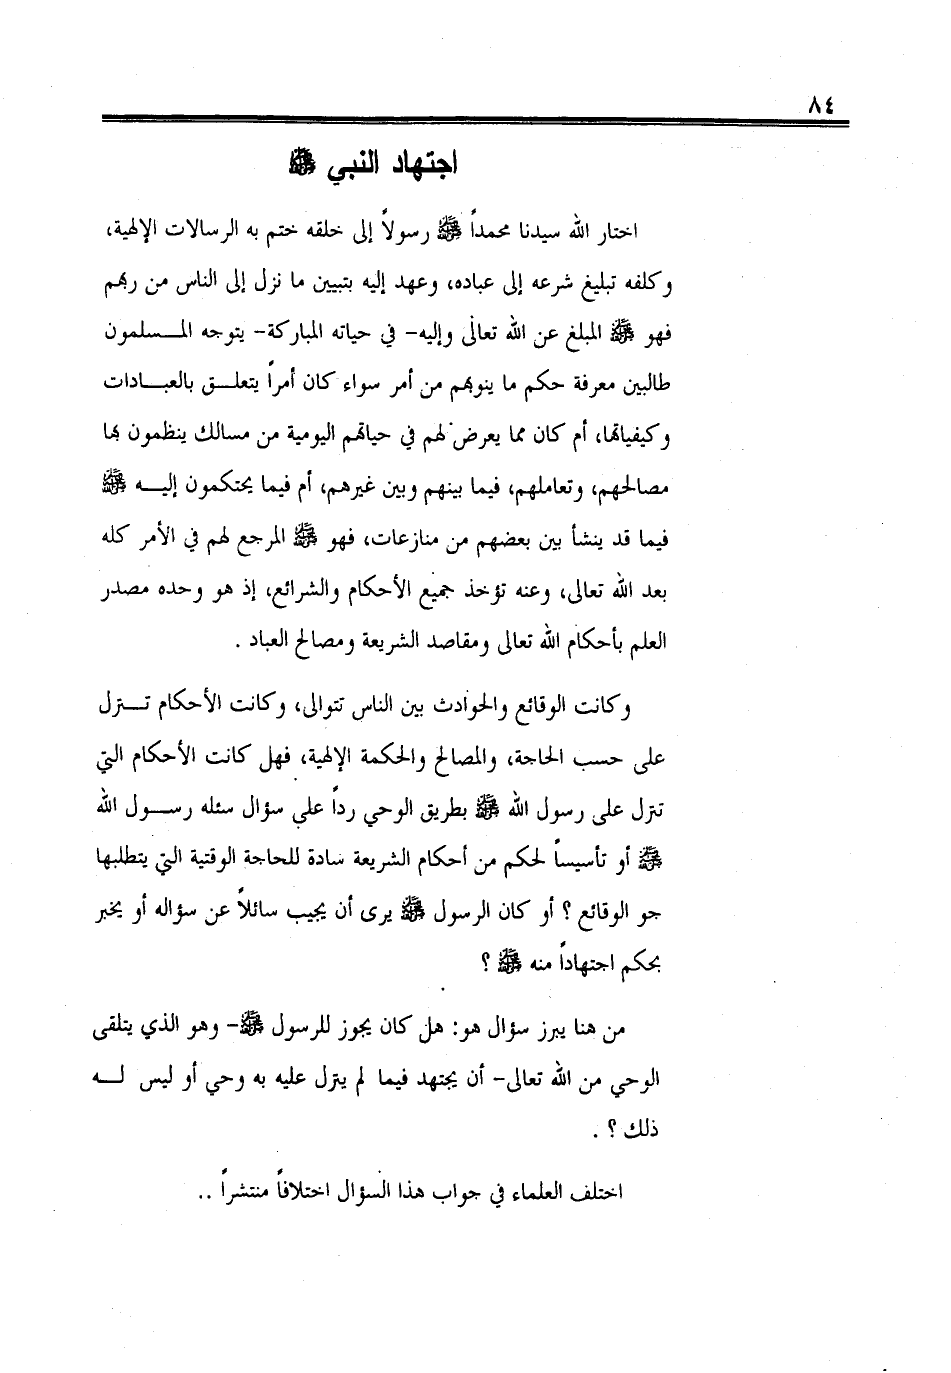 ٨٤
اجتهاد النبي ﷺ
اختار الله سيدنا محمداً ﷺ رسولاً إلى خلقه ختم به الرسالات الإلهية،
وكلفه تبليغ شرعه إلى عباده، وعهد إليه بتبيين ما نزل إلى الناس من ربهم
فهو ﷺ المبلغ عن الله تعالى وإليه- في حياته المباركة- يتوجه المسلمون
طالبين معرفة حكم ما ينوبهم من أمر سواء كان أمراً يتعلق بالعبادات
وكيفياتها، أم كان مما يعرض لهم في حياتهم اليومية من مسالك ينظمون بها
مصالحهم، وتعاملهم، فيما بينهم وبين غيرهم، أم فيما يحتكمون إليه ﷺ
فيما قد ينشأ بين بعضهم من منازعات، فهو ﷺ المرجع لهم في الأمر كله
بعد الله تعالى، وعنه تؤخذ جميع الأحكام والشرائع، إذ هو وحده مصدر
العلم بأحكام الله تعالى ومقاصد الشريعة ومصالح العباد .
وكانت الوقائع والحوادث بين الناس تتوالى، وكانت الأحكام تنزل
على حسب الحاجة، والمصالح والحكمة الإلهية، فهل كانت الأحكام التي
تنزل على رسول الله ﷺ بطريق الوحي رداً على سؤال سئله رسول الله
ﷺ أو تأسيساً لحكم من أحكام الشريعة سادة للحاجة الوقتية التي يتطلبها
جو الوقائع ؟ أو كان الرسول ﷺ يرى أن يجيب سائلاً عن سؤاله أو يخبر
بحكم اجتهاداً منه ﷺ ؟
من هنا يبرز سؤال هو: هل كان يجوز للرسول ﷺ- وهو الذي يتلقى
الوحي من الله تعالى- أن يجتهد فيما لم ينزل عليه به وحي أو ليس له
ذلك ؟ .
اختلف العلماء في جواب هذا السؤال اختلافاً منتشراً ..